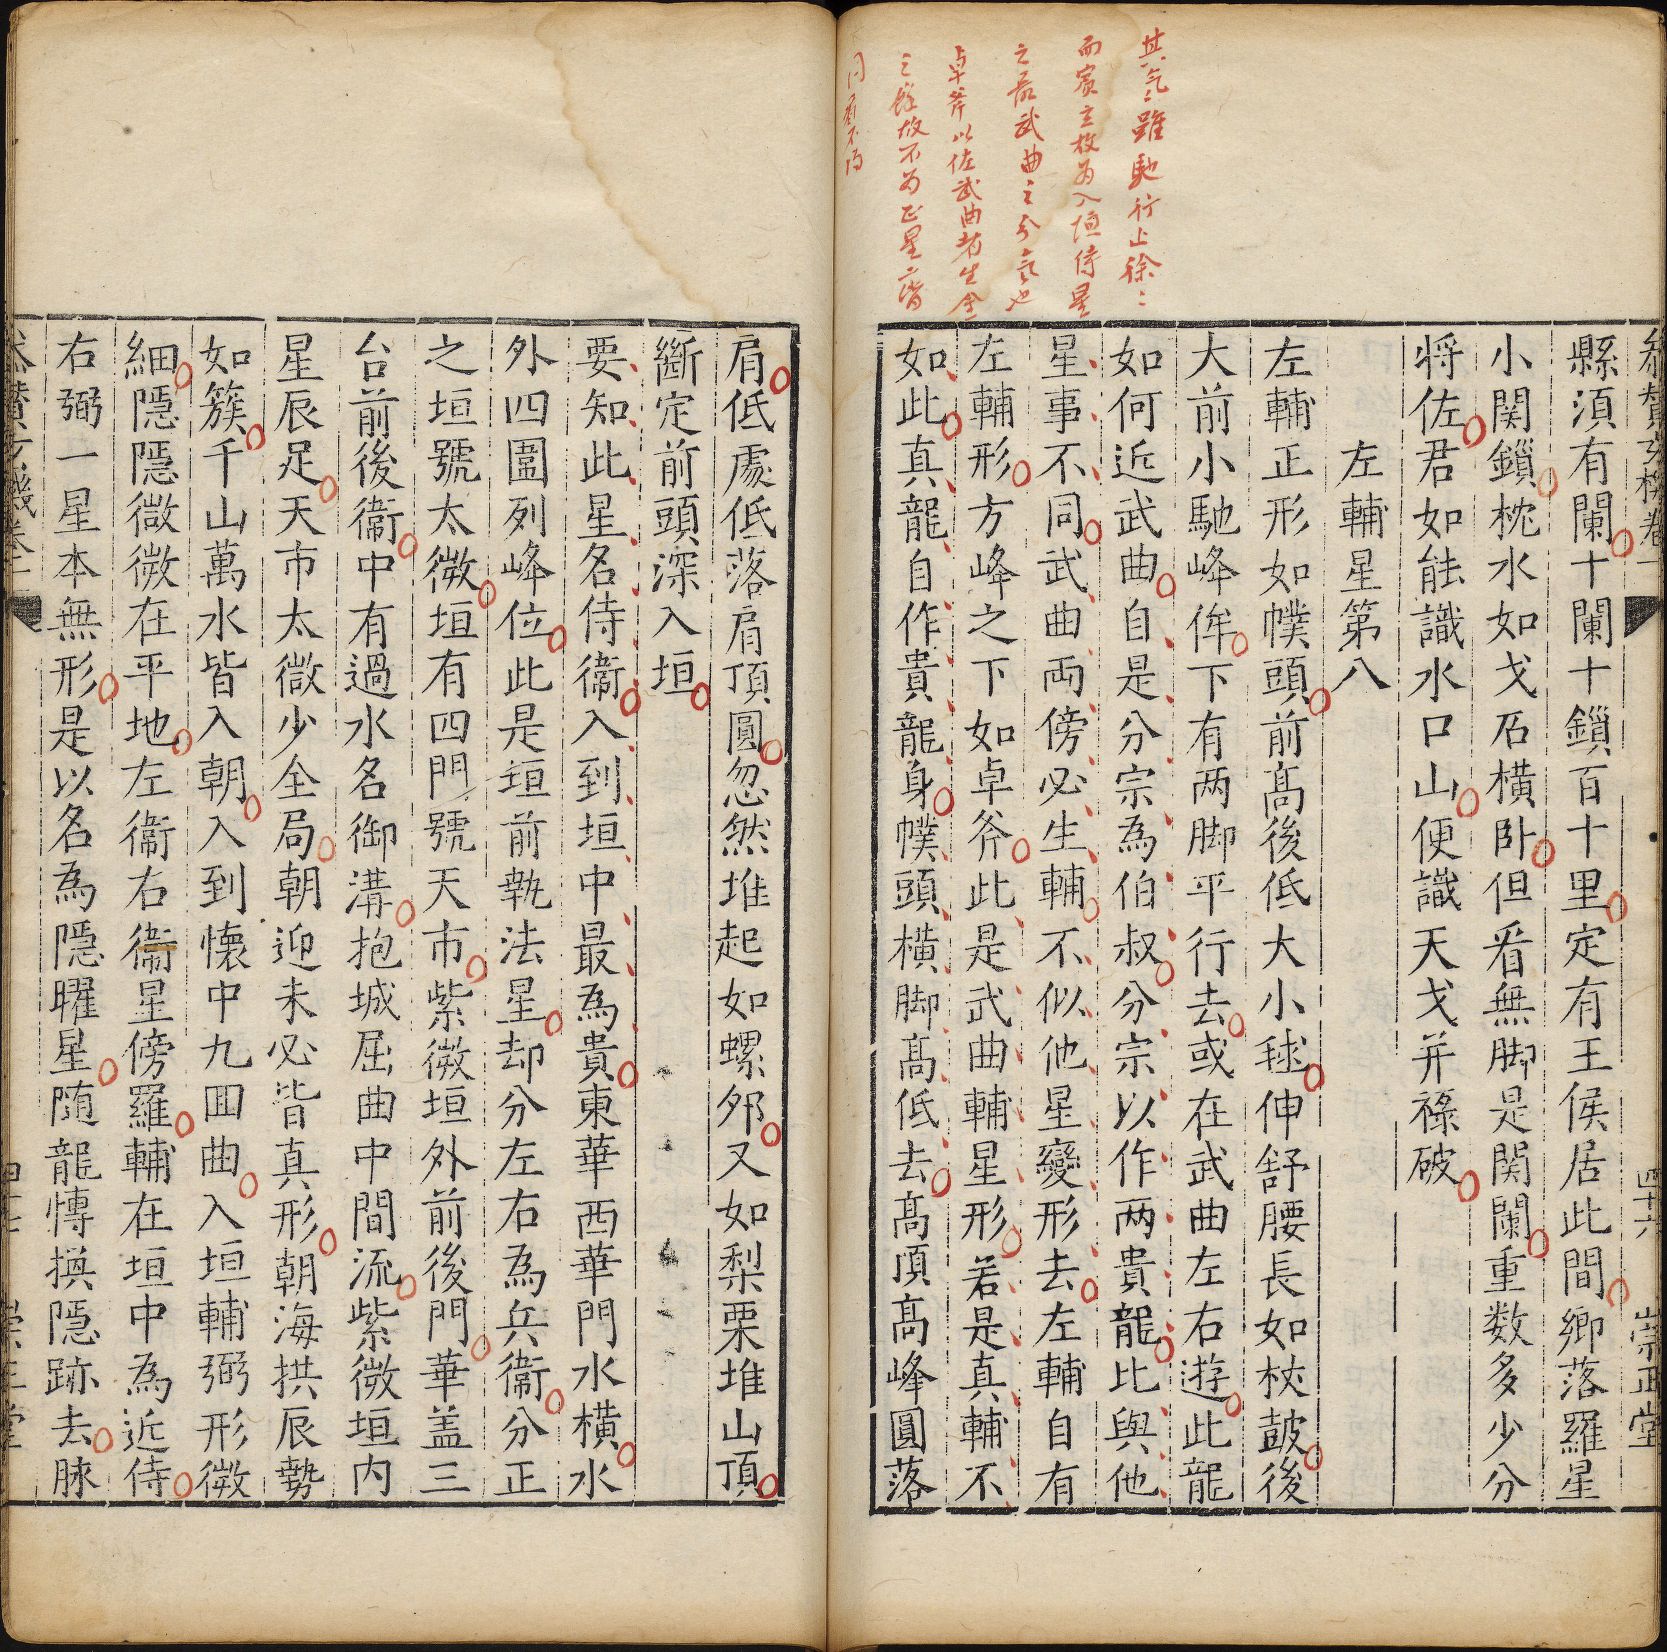 其氣雖馳行上徐〻
而賓主故為入垣侍星
之武曲之分氣也
卓斧以佐武曲者生金
之故不為正星
四十六
崇正堂
縣湏有闌十闌十鎖百十里定有王侯居此間鄉落羅星
小関鎖枕水如戈石橫卧但看無脚是関闌重数多少分
将佐君如能識水口山便識天戈并祿破
左輔星第八
左輔正形如幞頭前髙後低大小毬伸舒腰長如杖鼓後
大前小馳峰侔下有两脚平行去或在武曲左右遊此龍
如何近武曲自是分宗為伯叔分宗以作两貴龍比與他
星事不同武曲両傍必生輔不似他星變形去左輔自有
左輔形方峰之下如卓斧此是武曲輔星形若是真輔不
如此真龍自作貴龍身幞頭橫脚髙低去髙頂髙峰圓落
肩低處低落肩頂圓忽然堆起如螺夘又如梨栗堆山頂
斷定前頭深入垣
要知此星名侍衞入到垣中最為貴東華西華門水橫水
外四圍列峰位此是垣前執法星却分左右為兵衞分正
之垣號太微垣有四門號天市紫微垣外前後門華盖三
台前後衞中有過水名御溝抱城屈曲中間流紫微垣内
星辰足天市太微少全局朝迎未必皆真形朝海拱辰勢
如簇千山萬水皆入朝入到懐中九囬曲入垣輔弼形微
細隱隱微微在平地左衞右衞星傍羅輔在垣中為近侍
右弼一星本無形是以名為隱曜星随龍慱換隱跡去脉